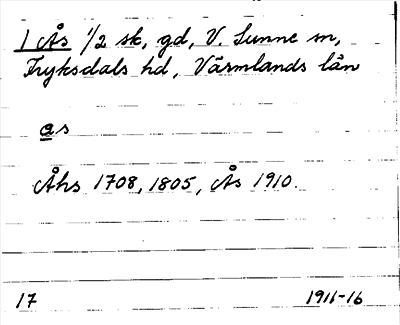 1 Ås 1/2 sk, gd, V. Sunne sn,
Fryksdals hd, Värmlands län
as
Åhs 1708, 1805, Ås 1910.
17 1911-16